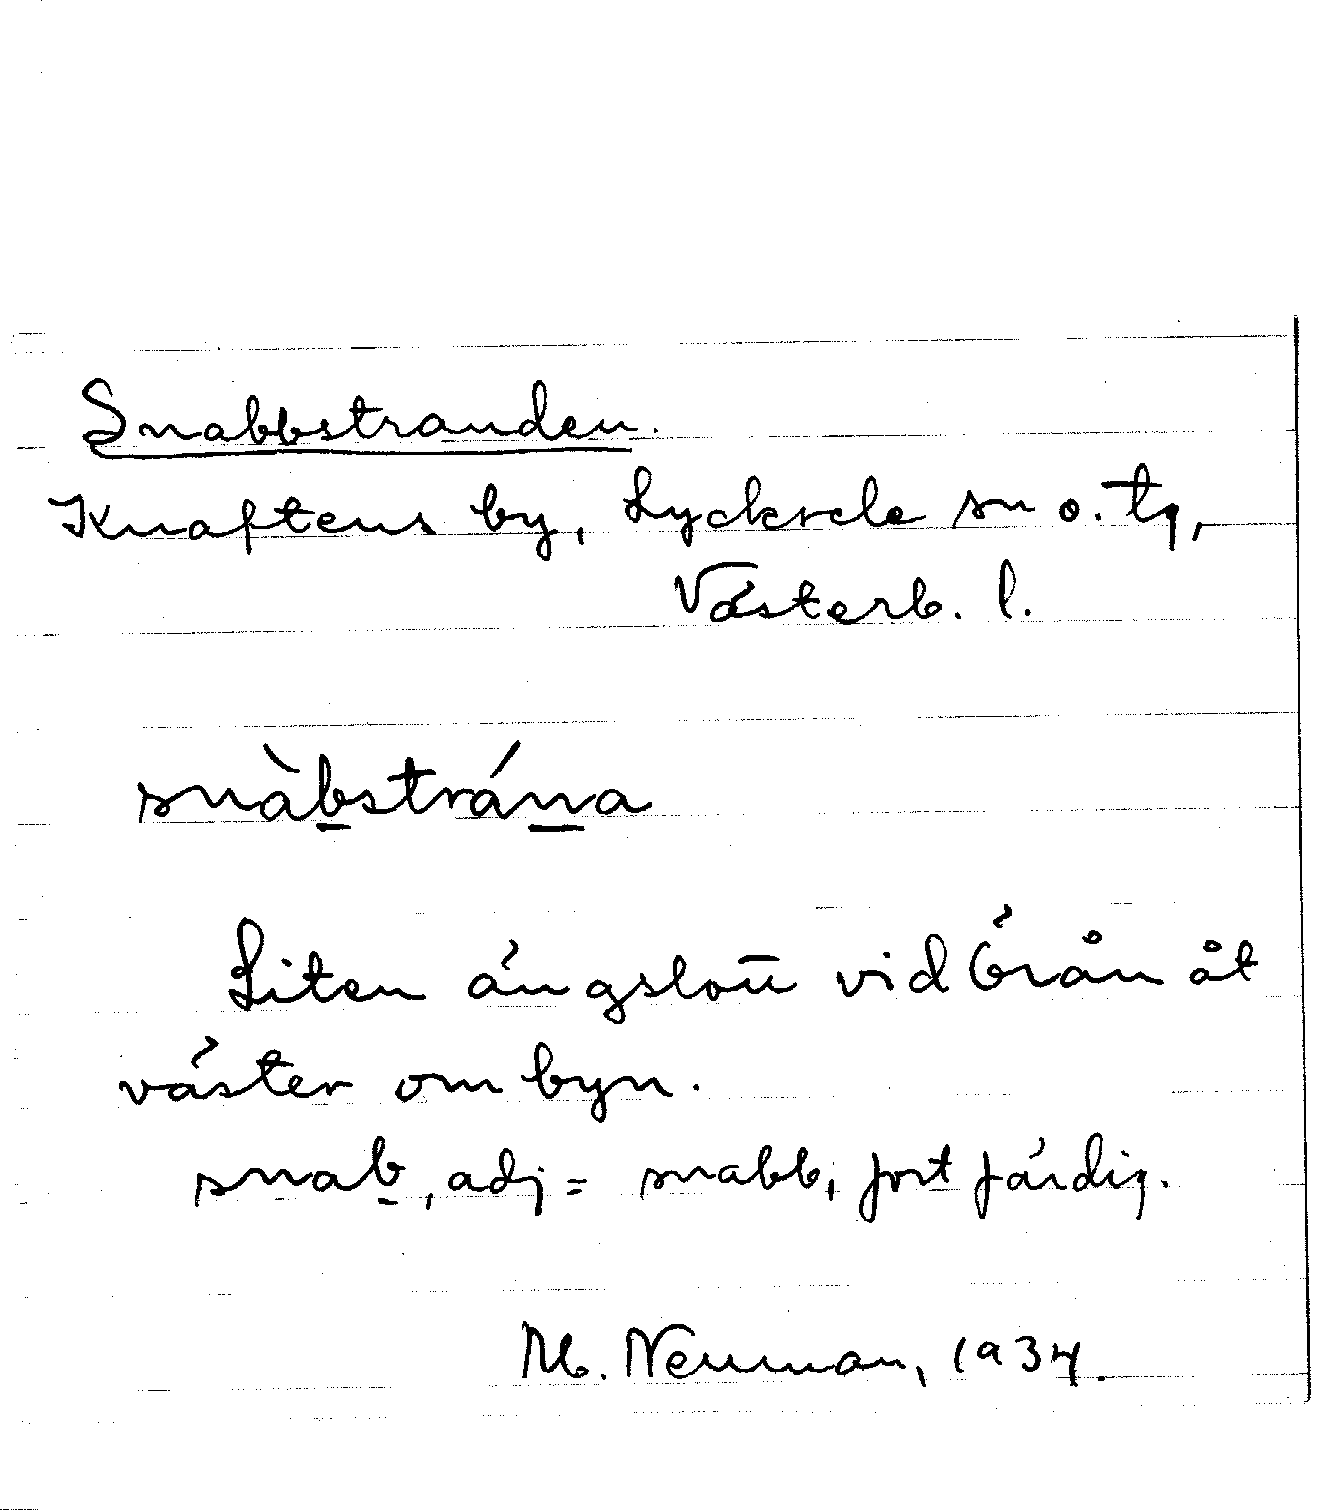 Snabbstranden.
Knaftens by, Lycksele sn o. tg,
Västerb. l.
snàb̲strán̲a
Liten ängslott vid Örån åt
väster om byn.
snab̲, adj = snabb, fort färdig.
M. Neuman, 1934.